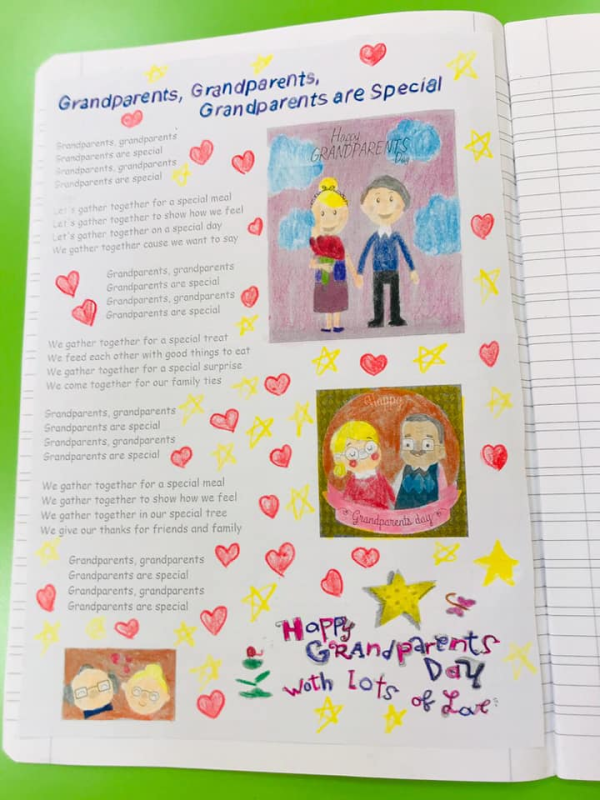 Grandparents, Grandparents,
Grandparents are Special
Grandparents, grandparents
Grandparents are special
Grandparents, grandparents
Grandparents are special
Let's gather together for a special meal
Let's gather together to show how we feel
Let's gather together on a special day
We gather together cause we want to say
Grandparents, grandparents
Grandparents are special
Grandparents, grandparents
Grandparents are special
We gather together for a special treat
We feed each other with good things to eat
We gather together for a special surprise
We come together for our family ties
Grandparents, grandparents
Grandparents are special
Grandparents, grandparents
Grandparents are special
We gather together for a special meal
We gather together to show how we feel
We gather together in our special tree
We give our thanks for friends and family
Grandparents, grandparents
Grandparents are special
Grandparents, grandparents
Grandparents are special
Happy
GRANDPARENTS
Day
Happy
Grandparents day
Happy
GRandparents
Day
with lots
of Love